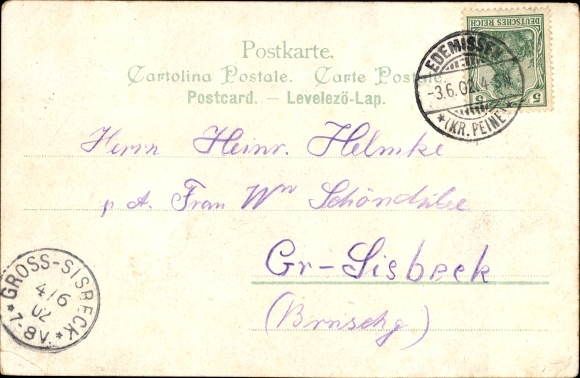 Postkarte.
Cartolina Postale. Carte Postale.
Postcard. — Levelező-Lap.
DEUTSCHES REICH
5
EDEMISSEN
-3.6.02. 4-5N.
*(KR. PEINE)
Herrn Heinr. Helmke
p A. Frau Wn
Gr-Sisbeck
(Brnschg)
GROSS-SISBECK
4/6
02
*7-8V.*